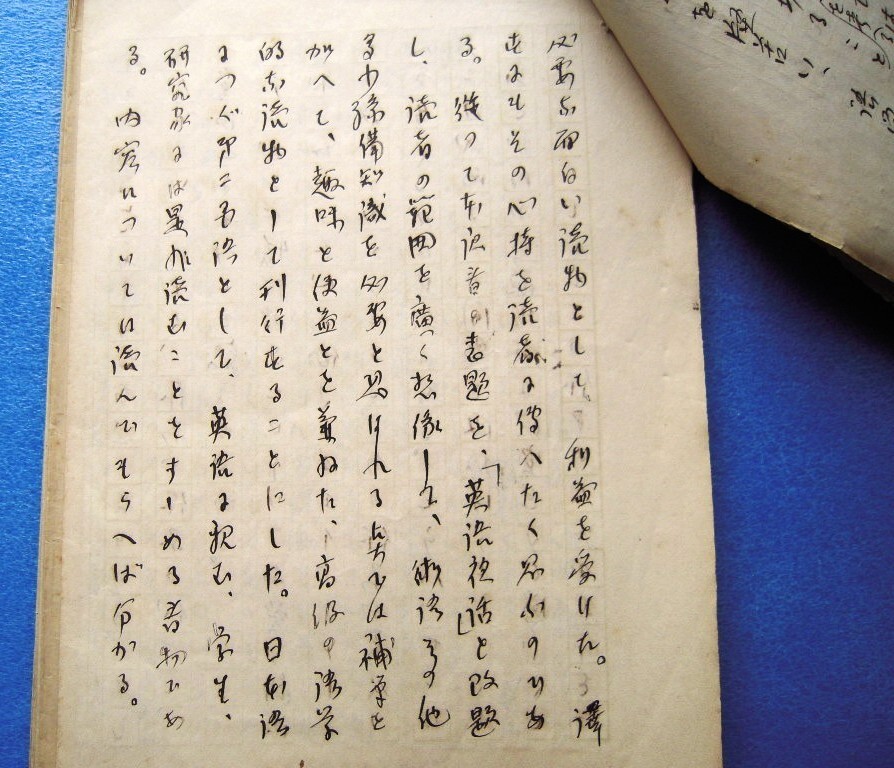 必要な面白い読物とした利益を受けた。譯
者はその心持を読者に傳へたく思ふのであ
る。従つて本訳書の書題を、「英語夜話」と改題
し、読者の範囲を廣く想像して、術語その他
多少豫備知識を必要と思はれる点では補筆を
加へて、趣味と便益とを兼ねた、高級の語学
的な読物として刊行することにした。日本語
につぐ第二国語として、英語に親む、学生、
研究家には是非読むことをすゝめる書物であ
る。内容については読んでもらへば分かる。